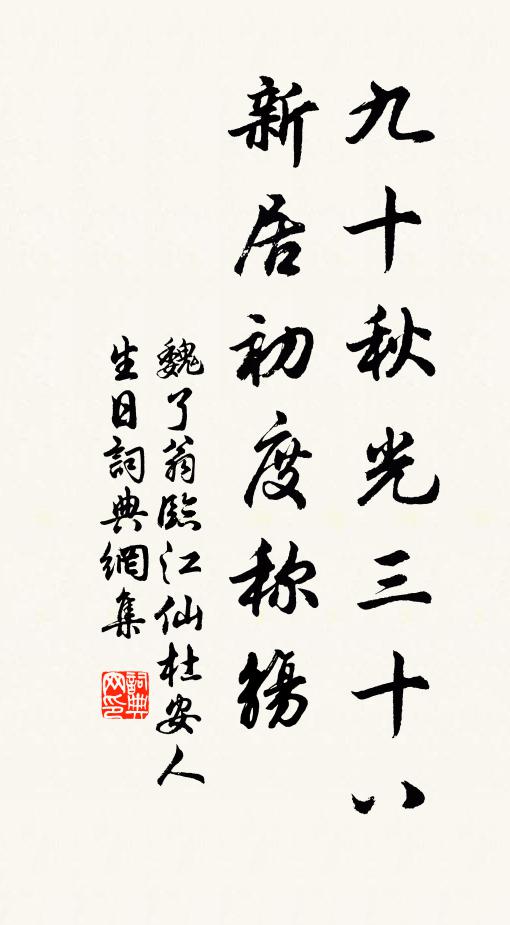 九十秋光三十八
新居初度称觞
魏了翁臨江仙杜安人
生日詞典網集
詞典网印